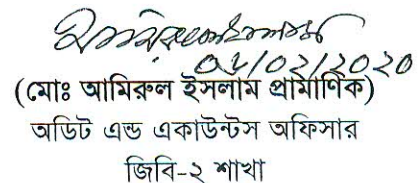 ০৫/০২/২০২০
(মোঃ আমিরুল ইসলাম প্রামাণিক)
অডিট এন্ড একাউন্টস অফিসার
জিবি-২ শাখা